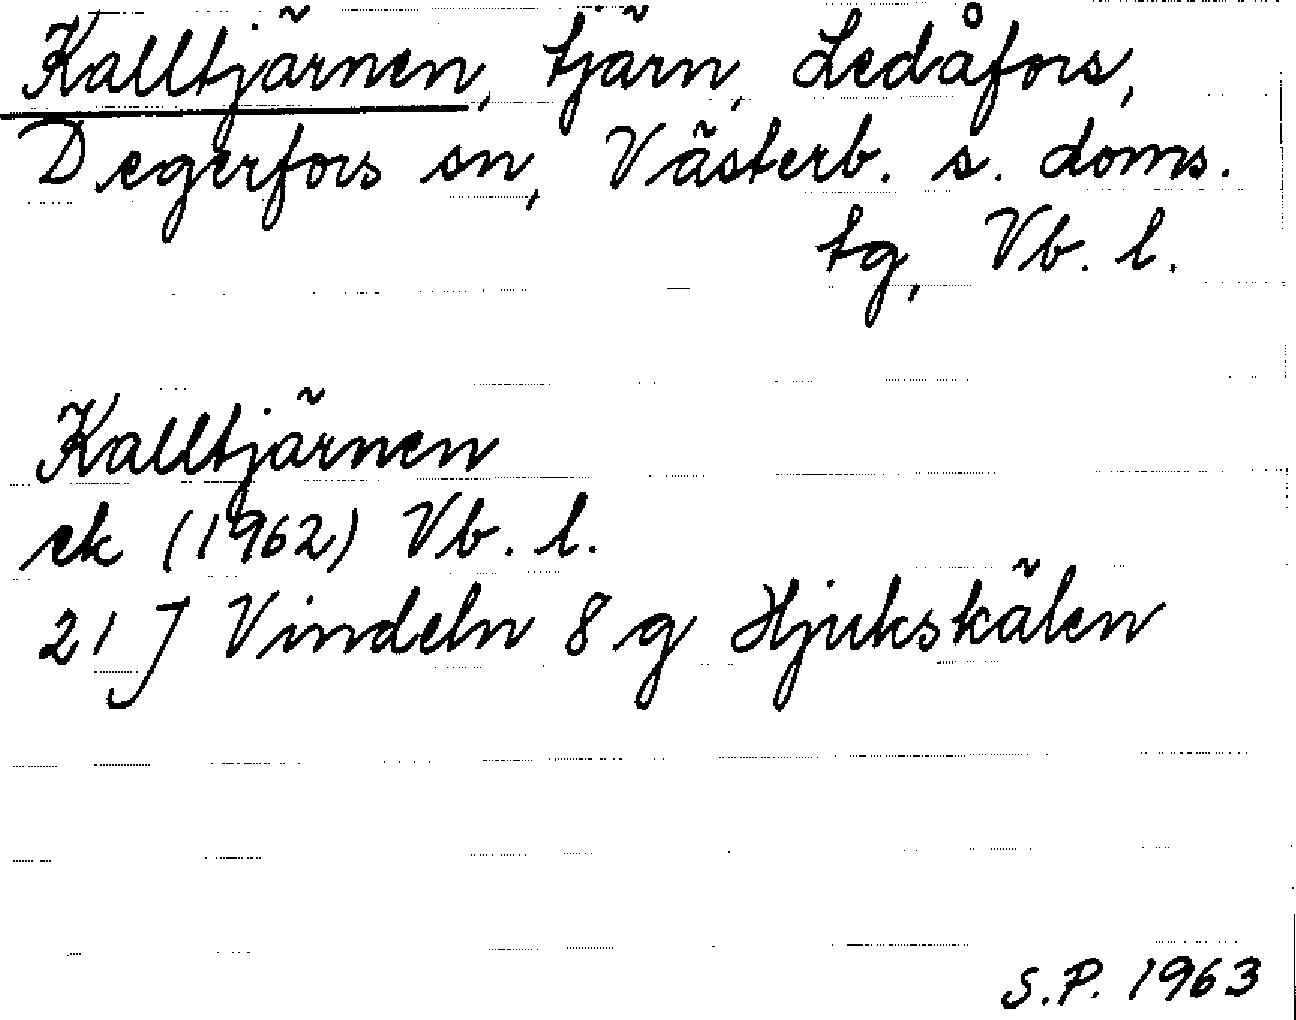 Kalltjärnen, tjärn, Ledåfors,
Degerfors sn, Västerb. s. doms.
tg, Vb. l.
Kalltjärnen
ek (1962) Vb. l.
21 J Vindeln 8 g Hjukskälen
S.P. 1963